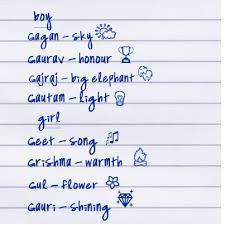 boy
Gagan – sky
Gaurav – honour
Gajraj – big elephant
Gautam – light
girl
Geet – song
Grishma – warmth
Gul – flower
Gauri – shining